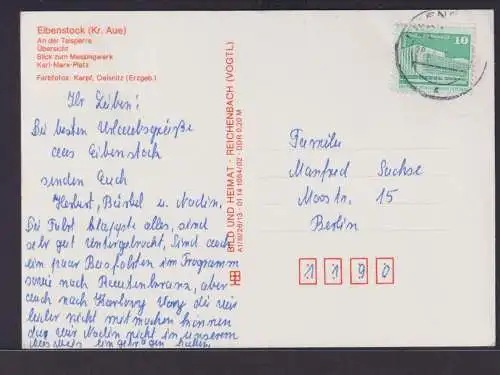 Eibenstock (Kr. Aue)
An der Talsperre
Übersicht
Blick zum Meisingwerk
Karl-Marx-Platz
Farbfotos: Karpf, Oelsnitz (Erzgeb.)
Ihr Lieben!
Die besten Urlaubsgrüße
aus Eibenstock
senden Euch
Herbert, Bärbel u. Nadin.
Die Fahrt klappte alles, sind
sehr gut untergebracht, Sind auch
ein paar Busfahrten im Programm
sowie nach aber
auch nach Karlovy Vary die wir
leider nicht mitmachen können
da wir Nadin nicht in unserem
BILD UND HEIMAT · REICHENBACH (VOGTL)
A1/B/26/13 · 01 14 1084/02 · DDR 0,20 M
10
Familie
Manfred Sachse
Moosstr. 15
Berlin
1190